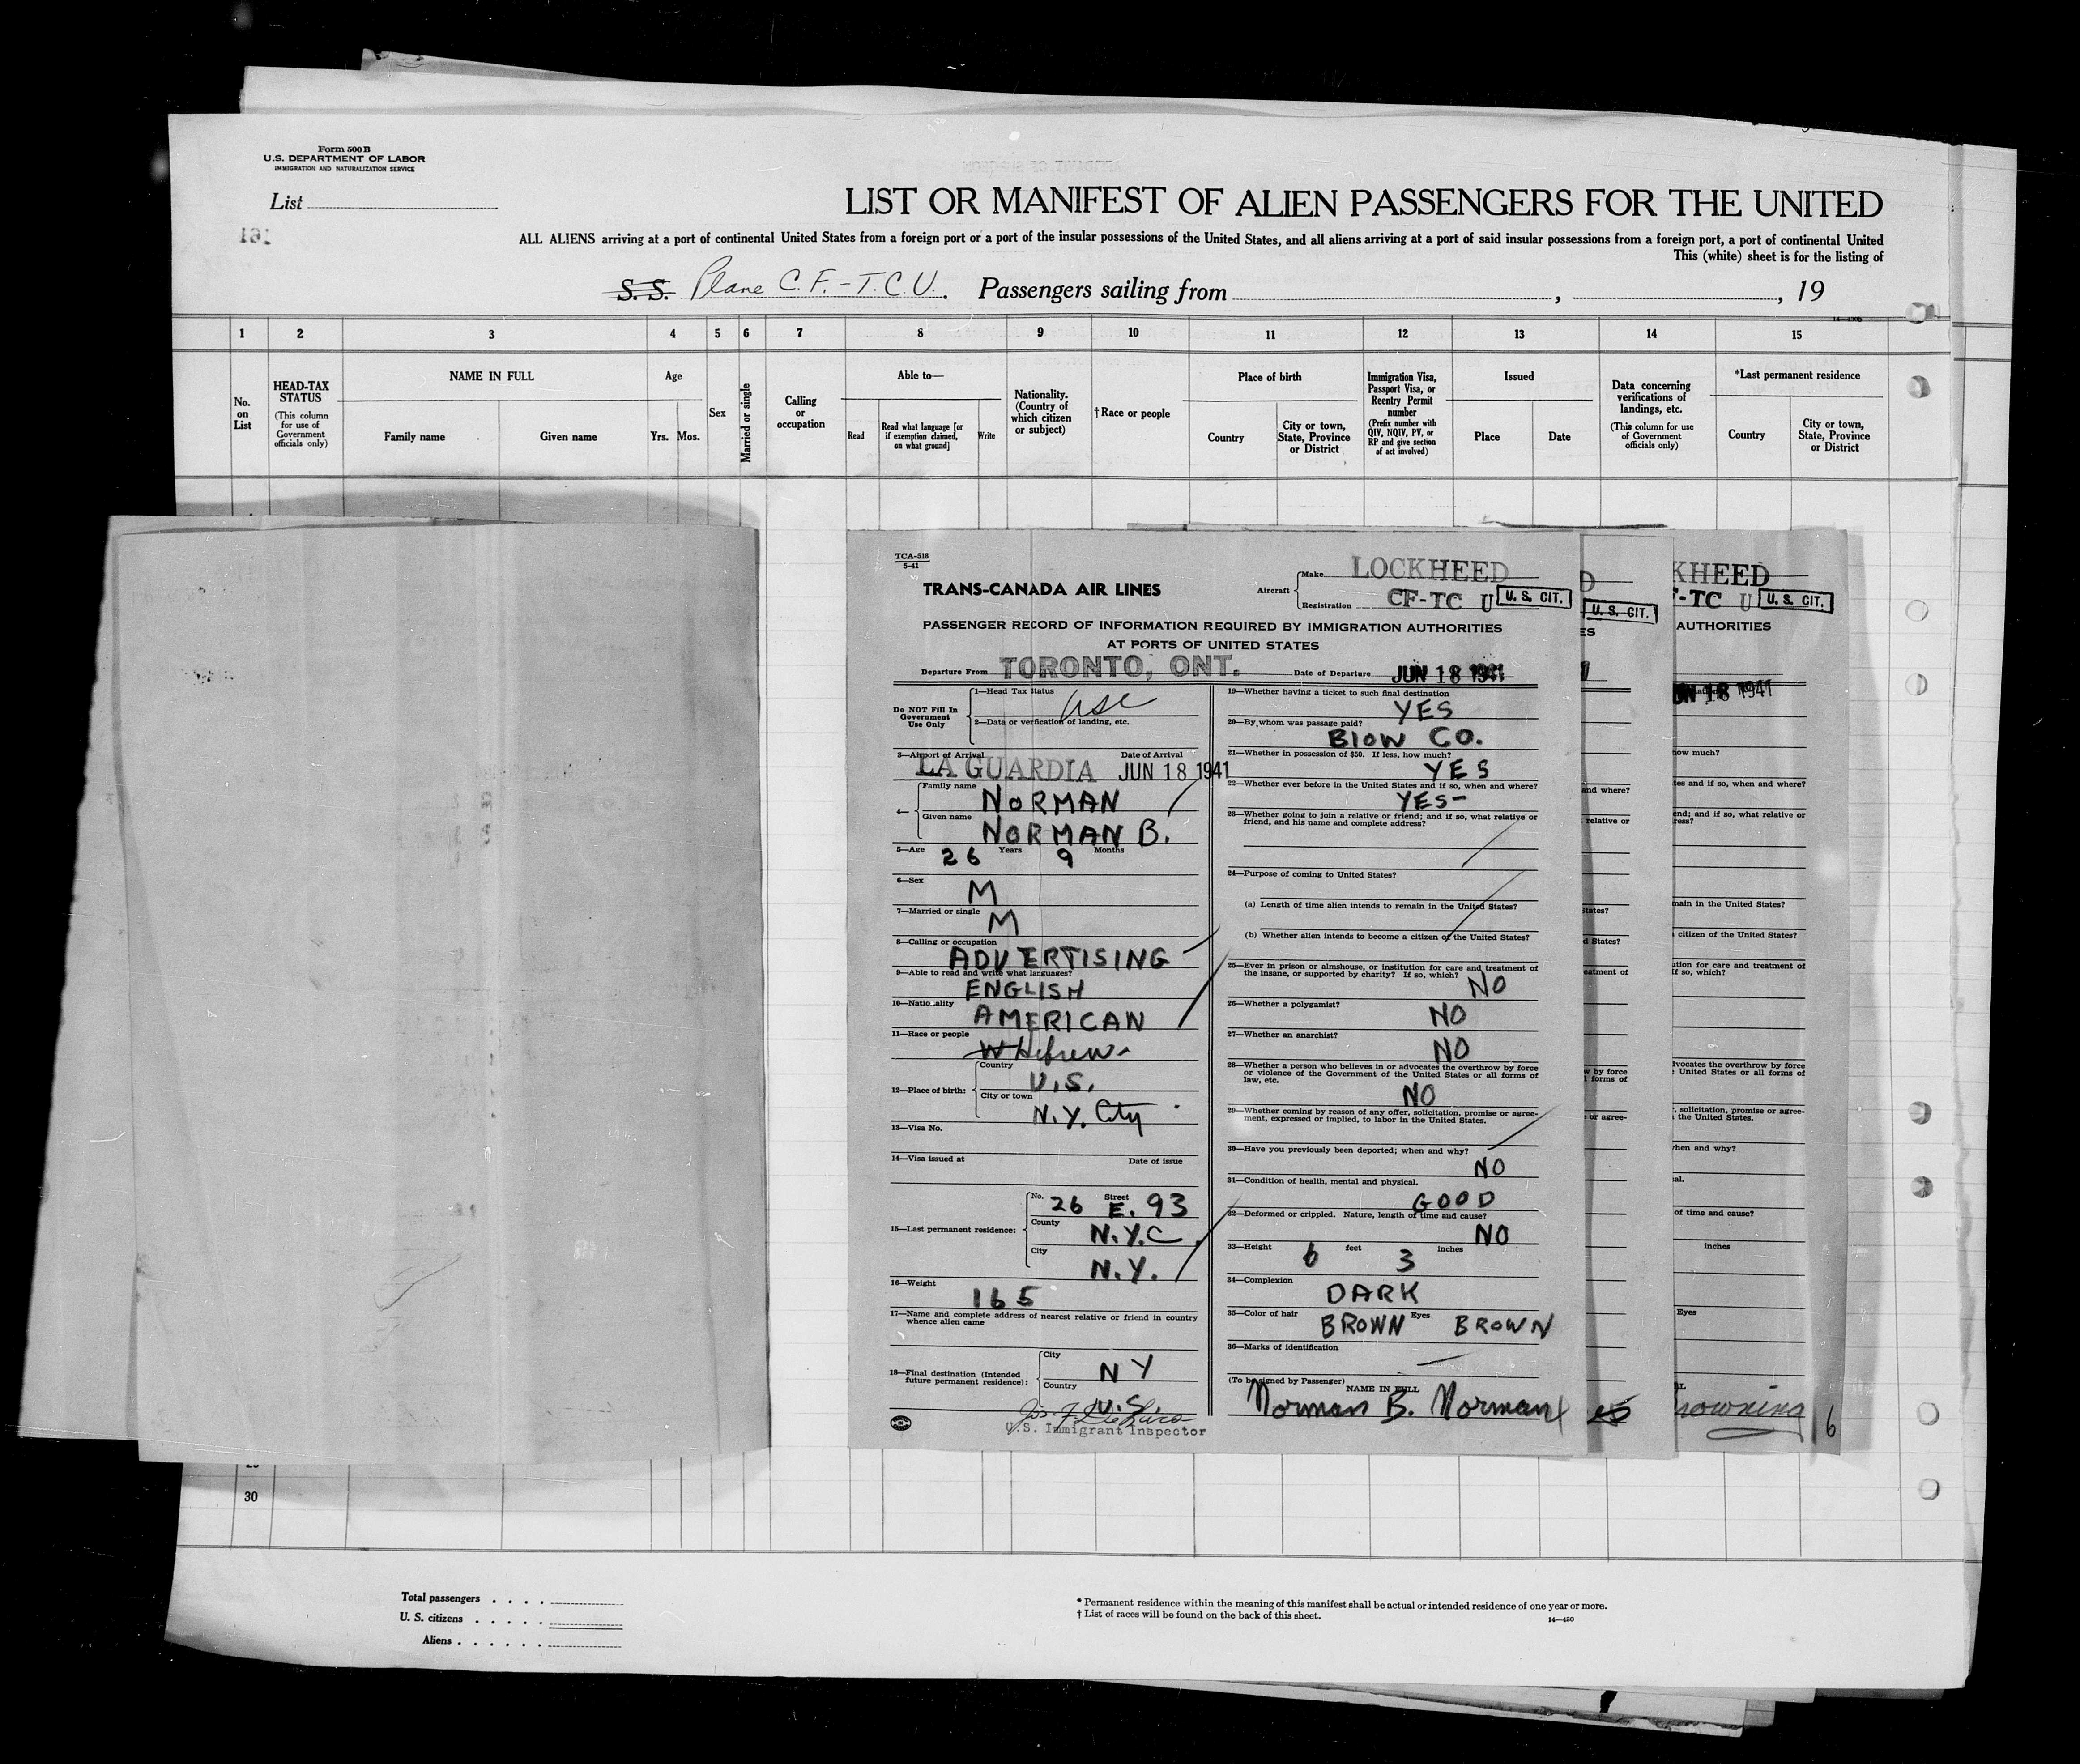 Form 500 B
U.S. DEPARTMENT OF LABOR
IMMIGRATION AND NATURALIZATION SERVICE
List
LIST OR MANIFEST OF ALIEN PASSENGERS FOR THE UNITED
ALL ALIENS arriving at a port of continental United States from a foreign port or a port of the insular possessions of the United States, and all aliens arriving at a port of said insular possessions from a foreign port, a port of continental United
This (white) sheet is for the listing of
S. S. Plane C.F.-T.C.U. Passengers sailing from , , 19
1 2 3 4 5 6 7 8 9 10 11 12 13 14 15
No. on List
HEAD-TAX STATUS
(This column for use of Government officials only)
NAME IN FULL
Family name Given name
Age
Yrs. Mos.
Sex
Married or single
Calling or occupation
Able to—
Read
Read what language [or if exemption claimed, on what ground]
Write
Nationality. (Country of which citizen or subject)
†Race or people
Place of birth
Country
City or town, State, Province or District
Immigration Visa, Passport Visa, or Reentry Permit number
(Prefix number with QIV, NQIV, PV, or RP and give section of act involved)
Issued
Place Date
Data concerning verifications of landings, etc.
(This column for use of Government officials only)
*Last permanent residence
Country
City or town, State, Province or District
TCA-518
5-41
TRANS-CANADA AIR LINES
Aircraft
Make LOCKHEED
Registration CF-TC U
U. S. CIT.
PASSENGER RECORD OF INFORMATION REQUIRED BY IMMIGRATION AUTHORITIES
AT PORTS OF UNITED STATES
Departure From TORONTO, ONT. Date of Departure JUN 18 1941
Do NOT Fill In Government Use Only
1—Head Tax Status
USC
2—Data or verfication of landing, etc.
3—Airport of Arrival Date of Arrival
LA GUARDIA JUN 18 1941
4—
Family name NORMAN
Given name NORMAN B.
5—Age 26 Years 9 Months
6—Sex M
7—Married or single M
8—Calling or occupation
ADVERTISING
9—Able to read and write what languages?
ENGLISH
10—Nationality
AMERICAN
11—Race or people
W Hebrew
12—Place of birth:
Country U.S.
City or town N.Y. City
13—Visa No.
14—Visa issued at Date of issue
15—Last permanent residence:
No. 26 Street E. 93
County N.Y.C.
City N.Y.
16—Weight 165
17—Name and complete address of nearest relative or friend in country whence alien came
18—Final destination (Intended future permanent residence):
City NY
Country U.S.
U.S. Immigrant Inspector
19—Whether having a ticket to such final destination
YES
20—By whom was passage paid?
BIOW CO.
21—Whether in possession of $50. If less, how much?
YES
22—Whether ever before in the United States and if so, when and where?
YES-
23—Whether going to join a relative or friend; and if so, what relative or friend, and his name and complete address?
24—Purpose of coming to United States?
(a) Length of time alien intends to remain in the United States?
(b) Whether alien intends to become a citizen of the United States?
25—Ever in prison or almshouse, or institution for care and treatment of the insane, or supported by charity? If so, which?
NO
26—Whether a polygamist?
NO
27—Whether an anarchist?
NO
28—Whether a person who believes in or advocates the overthrow by force or violence of the Government of the United States or all forms of law, etc.
NO
29—Whether coming by reason of any offer, solicitation, promise or agreement, expressed or implied, to labor in the United States.
30—Have you previously been deported; when and why?
NO
31—Condition of health, mental and physical.
GOOD
32—Deformed or crippled. Nature, length of time and cause?
NO
33—Height 6 feet 3 inches
34—Complexion
DARK
35—Color of hair BROWN Eyes BROWN
36—Marks of identification
(To be signed by Passenger)
NAME IN FULL
Norman B. Norman
D
U. S. CIT.
ES
and where?
relative or
States?
d States?
eatment of
w by force
l forms of
or agree-
KHEED
F-TC U
U. S. CIT.
AUTHORITIES
UN 18 1941
how much?
tes and if so, when and where?
end; and if so, what relative or
ress?
main in the United States?
a citizen of the United States?
ution for care and treatment of
If so, which?
dvocates the overthrow by force
e United States or all forms of
r, solicitation, promise or agree-
the United States.
when and why?
al.
of time and cause?
inches
Eyes
rowning
6
30
Total passengers
U. S. citizens
Aliens
* Permanent residence within the meaning of this manifest shall be actual or intended residence of one year or more.
† List of races will be found on the back of this sheet.
14—430